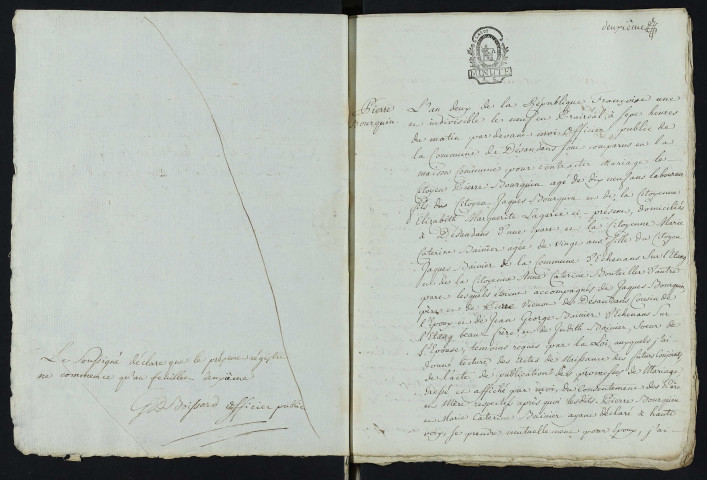 Le Soussigné déclare que le présent régistre
ne commence qu'au feuillet deuxième
Boissard officier public
deuxième
MINUTE
Pierre
Bourquin
L'an deux de la République Françoise une
et indivisible le neuf en Prairial à sept heures
du matin par devant moi Officier public de
la Commune de Désandans sont comparus en la
maison Commune pour contracter Mariage le
Citoyen Pierre Bourquin agé de Dix neuf ans laboureur
fils du Citoyen Jaques Bourquin et de la Citoyenne
Elizabeth Marguerite Lagarce ci-présens, domiciliés
à Désandans d'une part et la Citoyenne Marie
Caterine Bainier agée de vingt ans fille du Citoyen
Jaques Bainier de la Commune d'Echenans sur l'Etang
et de la Citoyenne Anne Caterine Bouteiller d'autre
part lesquels étoient accompagnés de Jaques Bourquin
père et de Pierre Vienot de Désandans Cousin de
l'Epoux et de Jean George Bainier d'Echenans Sur
l'Etang beau-frère et de Judith Bainier, Soeur de
l'Epouse, temoins requis par la Loi, auxquels j'ai
donné lecture des Actes de Naissances des futurs Conjoints
de l'acte de publication des promesses de Mariage
dressé et affiché par moi, du Consentement des Pères
et Mères respectifs après quoi lesdits Pierre Bourquin
et Marie Caterine Bainier ayant déclaré à haute
voix, se prendre mutuellement pour Epoux, j'ai